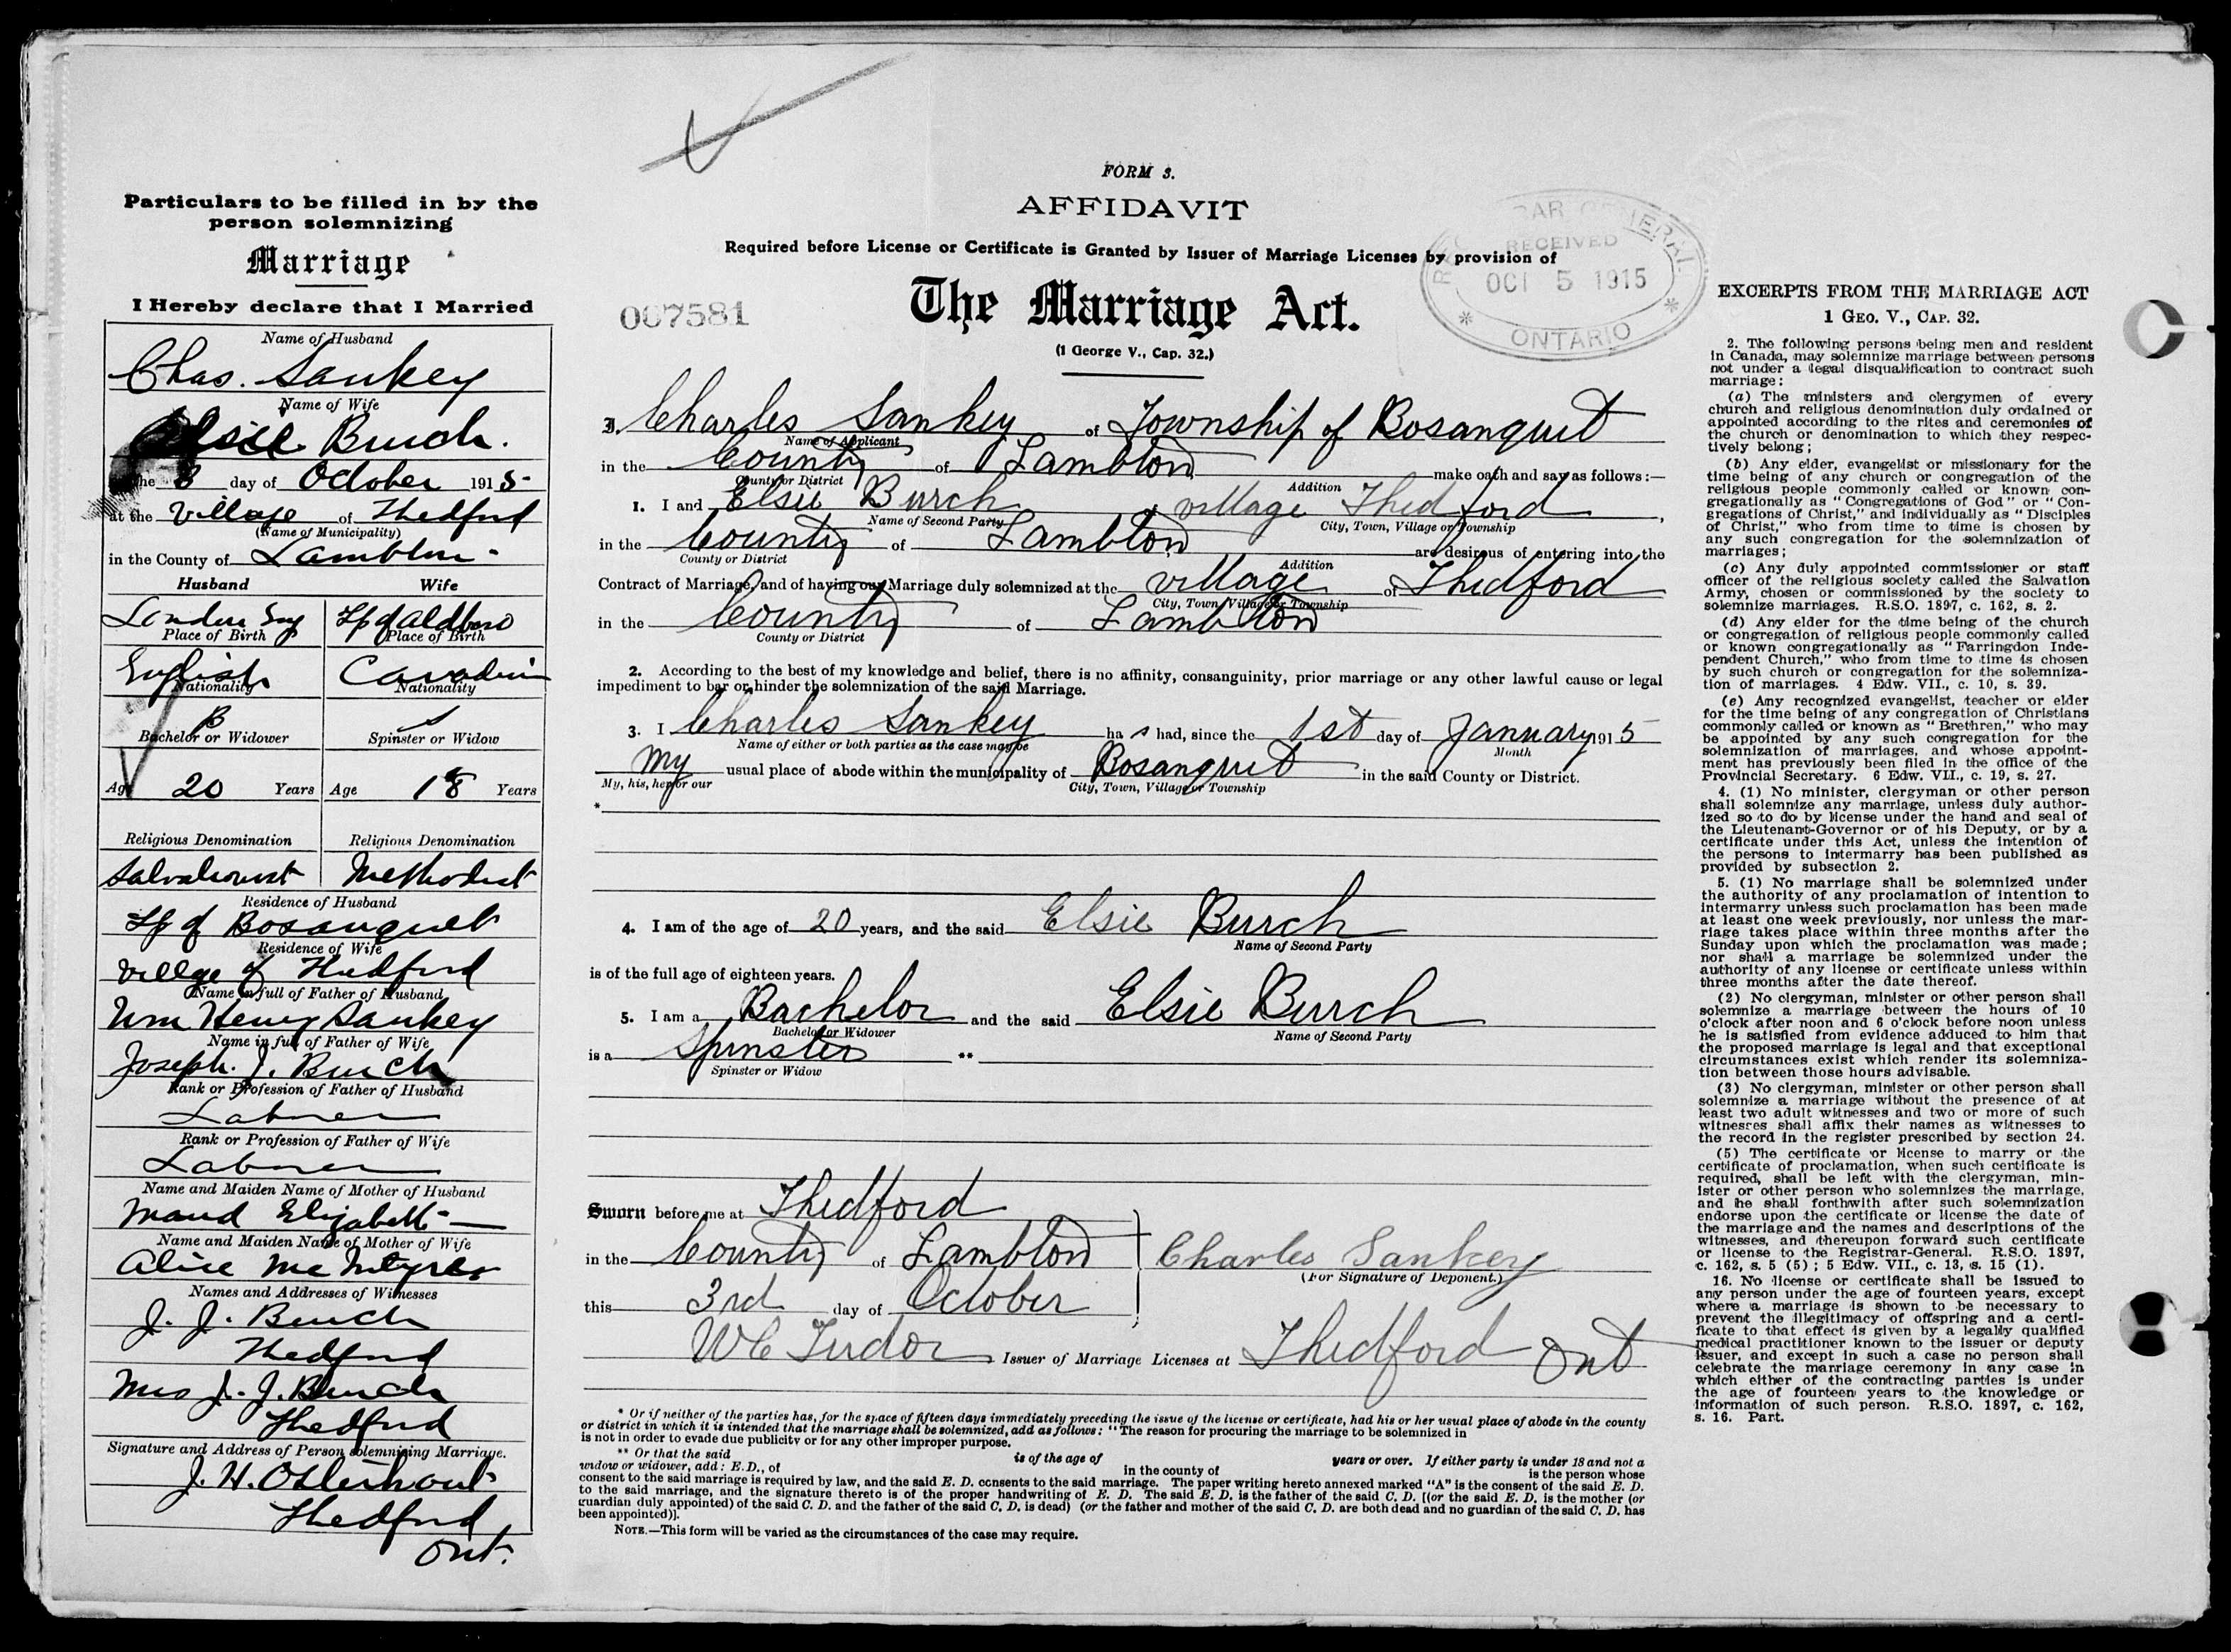 Particulars to be filled in by the
person solemnizing
Marriage
I Hereby declare that I Married
Name of Husband
Chas. Sankey
Name of Wife
Elsie Burch.
the 3 day of October 1915
at the Village of Thedford
(Name of Municipality)
in the County of Lambton
Husband Wife
London Eng Tp of Aldboro
Place of Birth Place of Birth
English Canadian
Nationality Nationality
B S
Bachelor or Widower Spinster or Widow
Age 20 Years Age 18 Years
Religious Denomination Religious Denomination
Salvationist Methodist
Residence of Husband
Tp of Bosanquet
Residence of Wife
Village of Thedford
Name in full of Father of Husband
Wm Henry Sankey
Name in full of Father of Wife
Joseph. J. Burch
Rank or Profession of Father of Husband
Laborer
Rank or Profession of Father of Wife
Laborer
Name and Maiden Name of Mother of Husband
Maud Elizabeth —
Name and Maiden Name of Mother of Wife
Alice McIntyre
Names and Addresses of Witnesses
J. J. Burch
Thedford
Mrs J. J. Burch
Thedford
Signature and Address of Person solemnizing Marriage.
J. H. Osterhout
Thedford
Ont.
FORM 3.
AFFIDAVIT
Required before License or Certificate is Granted by Issuer of Marriage Licenses by provision of
007581
The Marriage Act.
(1 George V., Cap. 32.)
REGISTRAR GENERAL
RECEIVED
OCT 5 1915
* ONTARIO *
I. Charles Sankey of Township of Bosanquet
Name of Applicant
in the County of Lambton make oath and say as follows:—
County or District Addition
1. I and Elsie Burch, village Thedford,
Name of Second Party City, Town, Village or Township
in the County of Lambton are desirous of entering into the
County or District Addition
Contract of Marriage, and of having our Marriage duly solemnized at the village of Thedford
City, Town, Village or Township
in the County of Lambton
County or District
2. According to the best of my knowledge and belief, there is no affinity, consanguinity, prior marriage or any other lawful cause or legal
impediment to bar or hinder the solemnization of the said Marriage.
3. I Charles Sankey has had, since the 1st day of January 1915
Name of either or both parties as the case may be Month
my usual place of abode within the municipality of Bosanquet in the said County or District.
My, his, her or our City, Town, Village or Township
*
4. I am of the age of 20 years, and the said Elsie Burch
Name of Second Party
is of the full age of eighteen years.
5. I am a Bachelor and the said Elsie Burch
Bachelor or Widower Name of Second Party
is a Spinster **
Spinster or Widow
Sworn before me at Thedford
in the County of Lambton Charles Sankey
(For Signature of Deponent.)
this 3rd day of October
WC Tudor Issuer of Marriage Licenses at Thedford Ont
* Or if neither of the parties has, for the space of fifteen days immediately preceding the issue of the license or certificate, had his or her usual place of abode in the county
or district in which it is intended that the marriage shall be solemnized, add as follows: "The reason for procuring the marriage to be solemnized in
is not in order to evade due publicity or for any other improper purpose.
** Or that the said is of the age of years or over. If either party is under 18 and not a
widow or widower, add: E.D., of in the county of is the person whose
consent to the said marriage is required by law, and the said E. D. consents to the said marriage. The paper writing hereto annexed marked "A" is the consent of the said E. D.
to the said marriage, and the signature thereto is of the proper handwriting of E. D. The said E. D. is the father of the said C. D. [(or the said E. D. is the mother (or
guardian duly appointed) of the said C. D. and the father of the said C. D. is dead) (or the father and mother of the said C. D. are both dead and no guardian of the said C. D. has
been appointed)].
NOTE.—This form will be varied as the circumstances of the case may require.
EXCERPTS FROM THE MARRIAGE ACT
1 GEO. V., CAP. 32.
2. The following persons being men and resident
in Canada, may solemnize marriage between persons
not under a legal disqualification to contract such
marriage:
(a) The ministers and clergymen of every
church and religious denomination duly ordained or
appointed according to the rites and ceremonies of
the church or denomination to which they respec-
tively belong;
(b) Any elder, evangelist or missionary for the
time being of any church or congregation of the
religious people commonly called or known con-
gregationally as "Congregations of God" or "Con-
gregations of Christ," and individually as "Disciples
of Christ," who from time to time is chosen by
any such congregation for the solemnization of
marriages;
(c) Any duly appointed commissioner or staff
officer of the religious society called the Salvation
Army, chosen or commissioned by the society to
solemnize marriages. R.S.O. 1897, c. 162, s. 2.
(d) Any elder for the time being of the church
or congregation of religious people commonly called
or known congregationally as "Farringdon Inde-
pendent Church," who from time to time is chosen
by such church or congregation for the solemniza-
tion of marriages. 4 Edw. VII., c. 10, s. 39.
(e) Any recognized evangelist, teacher or elder
for the time being of any congregation of Christians
commonly called or known as "Brethren," who may
be appointed by any such congregation for the
solemnization of marriages, and whose appoint-
ment has previously been filed in the office of the
Provincial Secretary. 6 Edw. VII., c. 19, s. 27.
4. (1) No minister, clergyman or other person
shall solemnize any marriage, unless duly author-
ized so to do by license under the hand and seal of
the Lieutenant-Governor or of his Deputy, or by a
certificate under this Act, unless the intention of
the persons to intermarry has been published as
provided by subsection 2.
5. (1) No marriage shall be solemnized under
the authority of any proclamation of intention to
intermarry unless such proclamation has been made
at least one week previously, nor unless the mar-
riage takes place within three months after the
Sunday upon which the proclamation was made;
nor shall a marriage be solemnized under the
authority of any license or certificate unless within
three months after the date thereof.
(2) No clergyman, minister or other person shall
solemnize a marriage between the hours of 10
o'clock after noon and 6 o'clock before noon unless
he is satisfied from evidence adduced to him that
the proposed marriage is legal and that exceptional
circumstances exist which render its solemniza-
tion between those hours advisable.
(3) No clergyman, minister or other person shall
solemnize a marriage without the presence of at
least two adult witnesses and two or more of such
witnesses shall affix their names as witnesses to
the record in the register prescribed by section 24.
(5) The certificate or license to marry or the
certificate of proclamation, when such certificate is
required, shall be left with the clergyman, min-
ister or other person who solemnizes the marriage,
and he shall forthwith after such solemnization
endorse upon the certificate or license the date of
the marriage and the names and descriptions of the
witnesses, and thereupon forward such certificate
or license to the Registrar-General. R.S.O. 1897,
c. 162, s. 5 (5); 5 Edw. VII., c. 13, s. 15 (1).
16. No license or certificate shall be issued to
any person under the age of fourteen years, except
where a marriage is shown to be necessary to
prevent the illegitimacy of offspring and a certi-
ficate to that effect is given by a legally qualified
medical practitioner known to the issuer or deputy
issuer, and except in such a case no person shall
celebrate the marriage ceremony in any case in
which either of the contracting parties is under
the age of fourteen years to the knowledge or
information of such person. R.S.O. 1897, c. 162,
s. 16. Part.